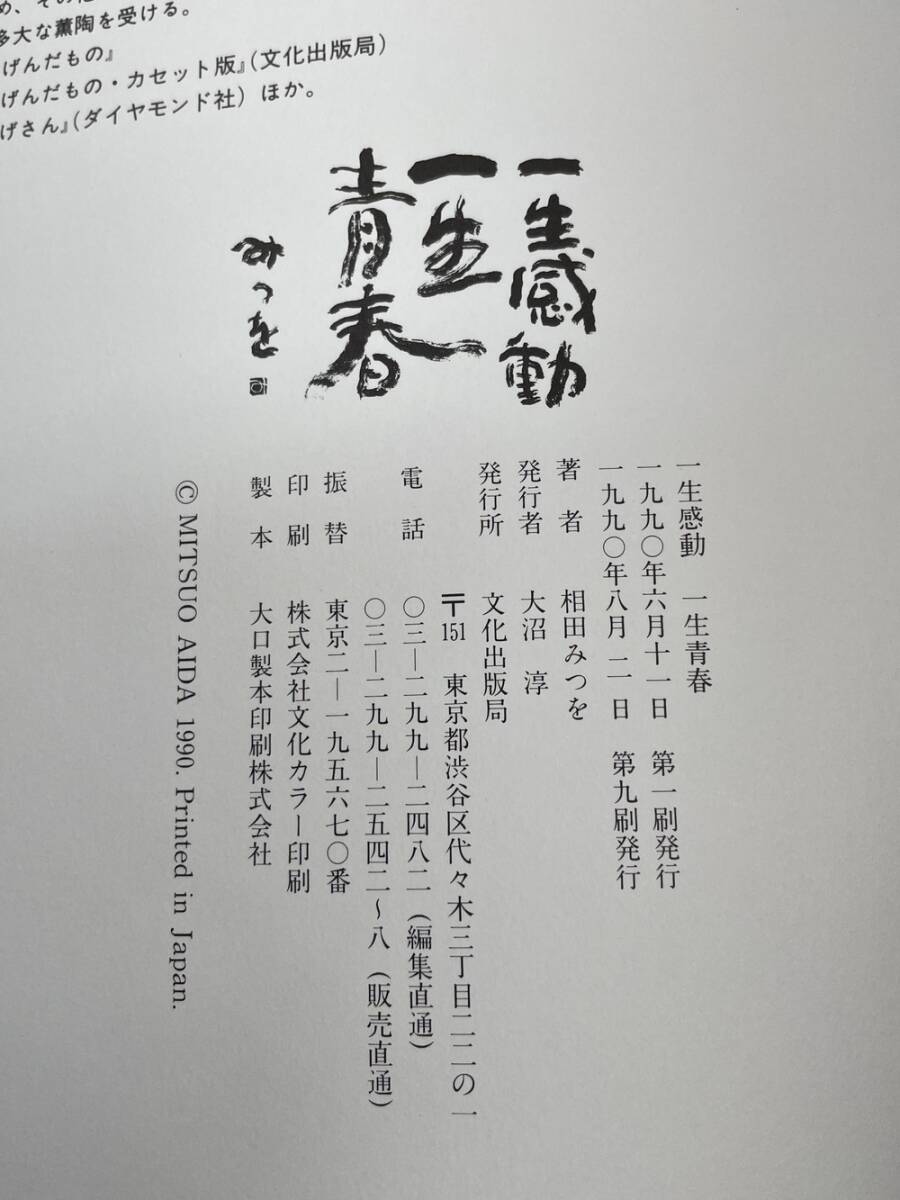 多大な薫陶を受ける。
げんだもの』
げんだもの・カセット版』(文化出版局)
げさん』(ダイヤモンド社) ほか。
一生感動
一生
青春
みつを
一生感動 一生青春
一九九〇年六月十一日 第一刷発行
一九九〇年八月二一日 第九刷発行
著者 相田みつを
発行者 大沼 淳
発行所 文化出版局
〒151 東京都渋谷区代々木三丁目二二の一
電話 〇三―二九九―二四八二(編集直通)
〇三―二九九―二五四二〜八(販売直通)
振替 東京二―一九五六七〇番
印刷 株式会社文化カラー印刷
製本 大口製本印刷株式会社
© MITSUO AIDA 1990. Printed in Japan.